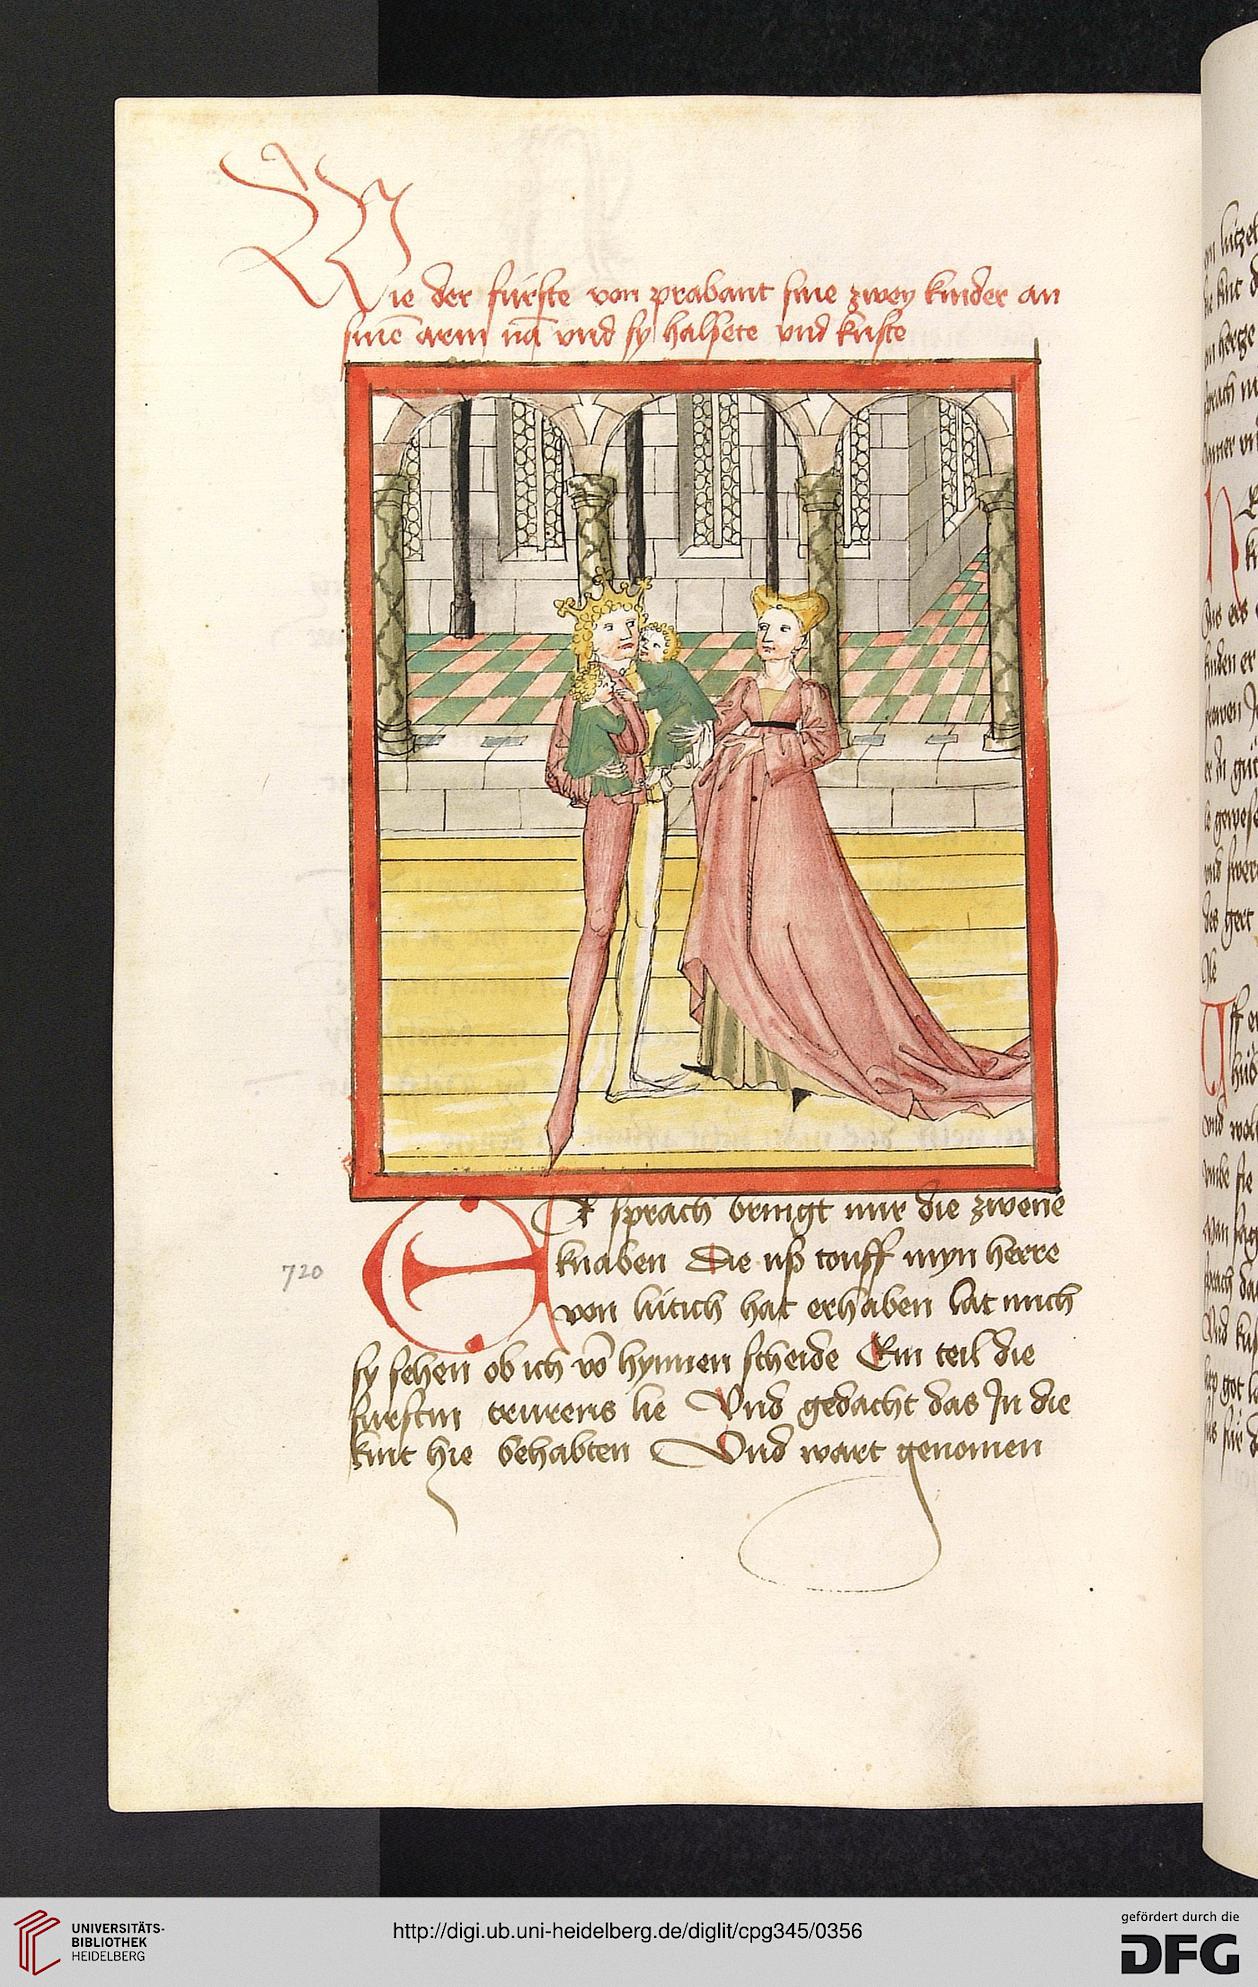 Wie der fürste von prabant sine zwey kinder an
sinē arm nā vnd sy halsete vnd kuste
ER sprach bringt mir die zwene
720
knaben Die uß touff myn herre
von lütich hat erhaben Lat mich
sy sehen ob ich vō hynnen scheide Ein teil die
furstin trurens lie Vnd gedacht das In die
kint hie behabten Vnd wart genomen
UNIVERSITÄTS-
BIBLIOTHEK
HEIDELBERG
http://digi.ub.uni-heidelberg.de/diglit/cpg345/0356
gefördert durch die
DFG